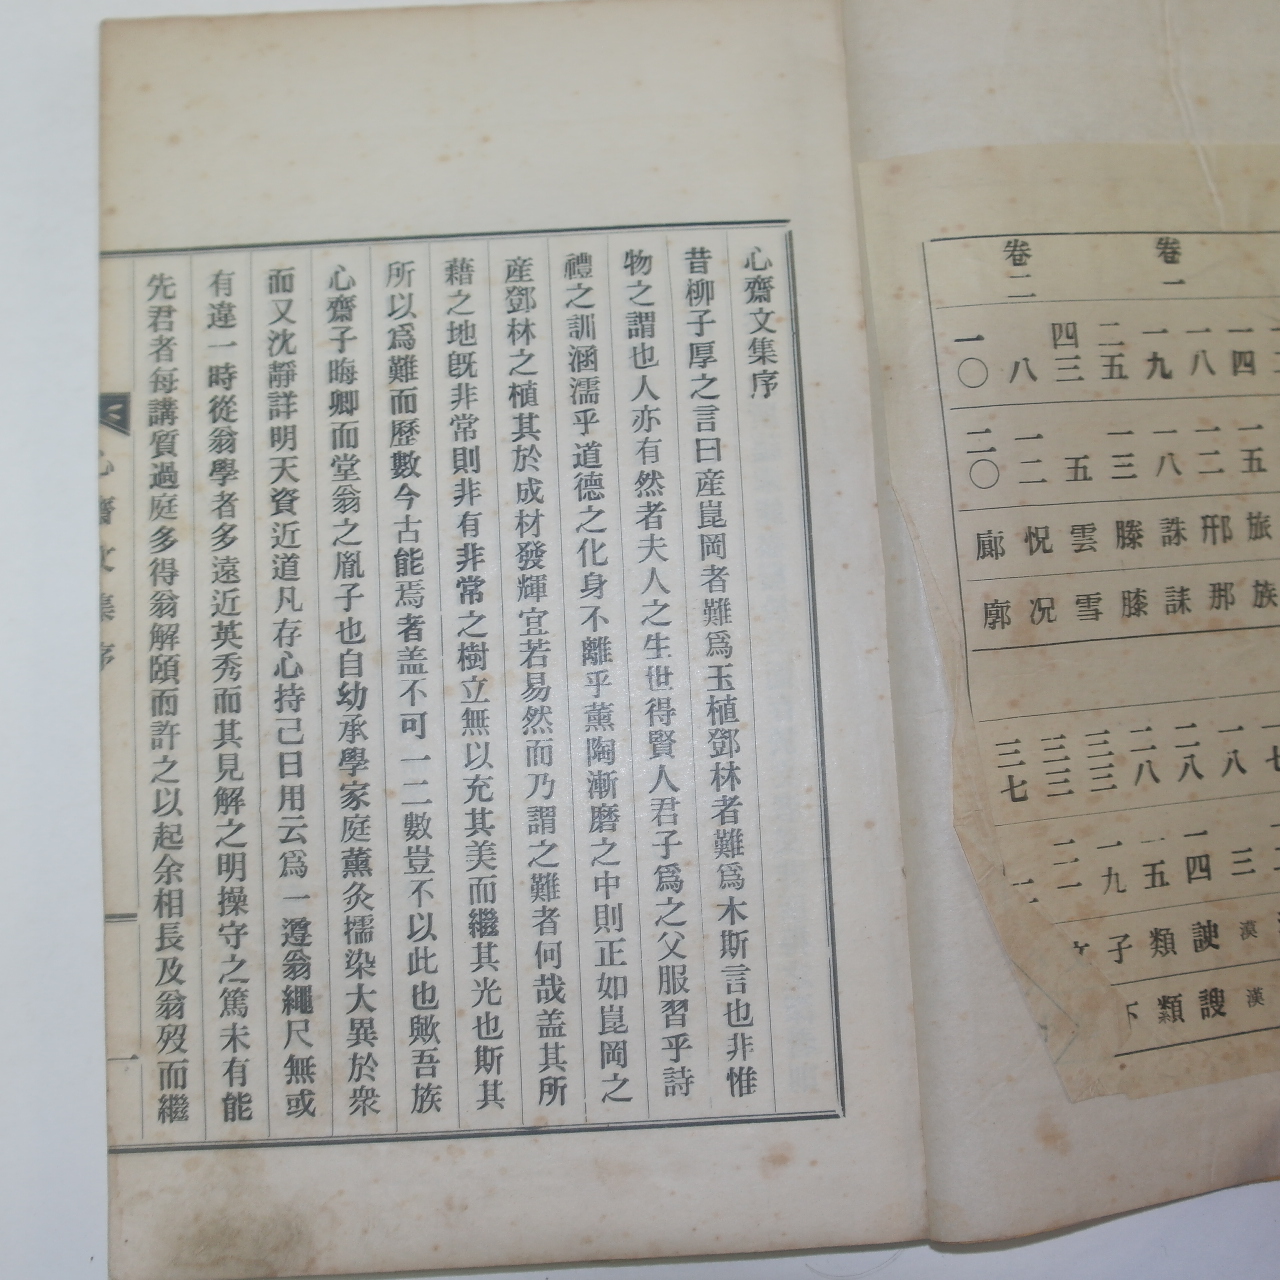 心齋文集序
昔柳子厚之言曰産崑岡者難爲玉植鄧林者難爲木斯言也非惟
物之謂也人亦有然者夫人之生世得賢人君子爲之父服習乎詩
禮之訓涵濡乎道德之化身不離乎薰陶漸磨之中則正如崑岡之
産鄧林之植其於成材發輝宜若易然而乃謂之難者何哉盖其所
藉之地旣非常則非有非常之樹立無以充其美而繼其光也斯其
所以爲難而歷數今古能焉者盖不可一二數豈不以此也歟吾族
心齋子晦卿而堂翁之胤子也自幼承學家庭薰灸擩染大異於衆
而又沈靜詳明天資近道凡存心持己日用云爲一遵翁繩尺無或
有違一時從翁學者多遠近英秀而其見解之明操守之篤未有能
先君者每講質過庭多得翁解頤而許之以起余相長及翁歿而繼
心齋文集序
一
卷一
一四 一五 旅 族
一八 一二 邢 那
一九 一八 誅 誄
二五 一三 滕 膝
四三 五 雲 雪
卷二
八 一二 怳 况
一〇 二〇 廊 廓
三 漢 漢
一八 四 謏
二八 一五 類 纇
二八 一九 子
三三
三三
三七